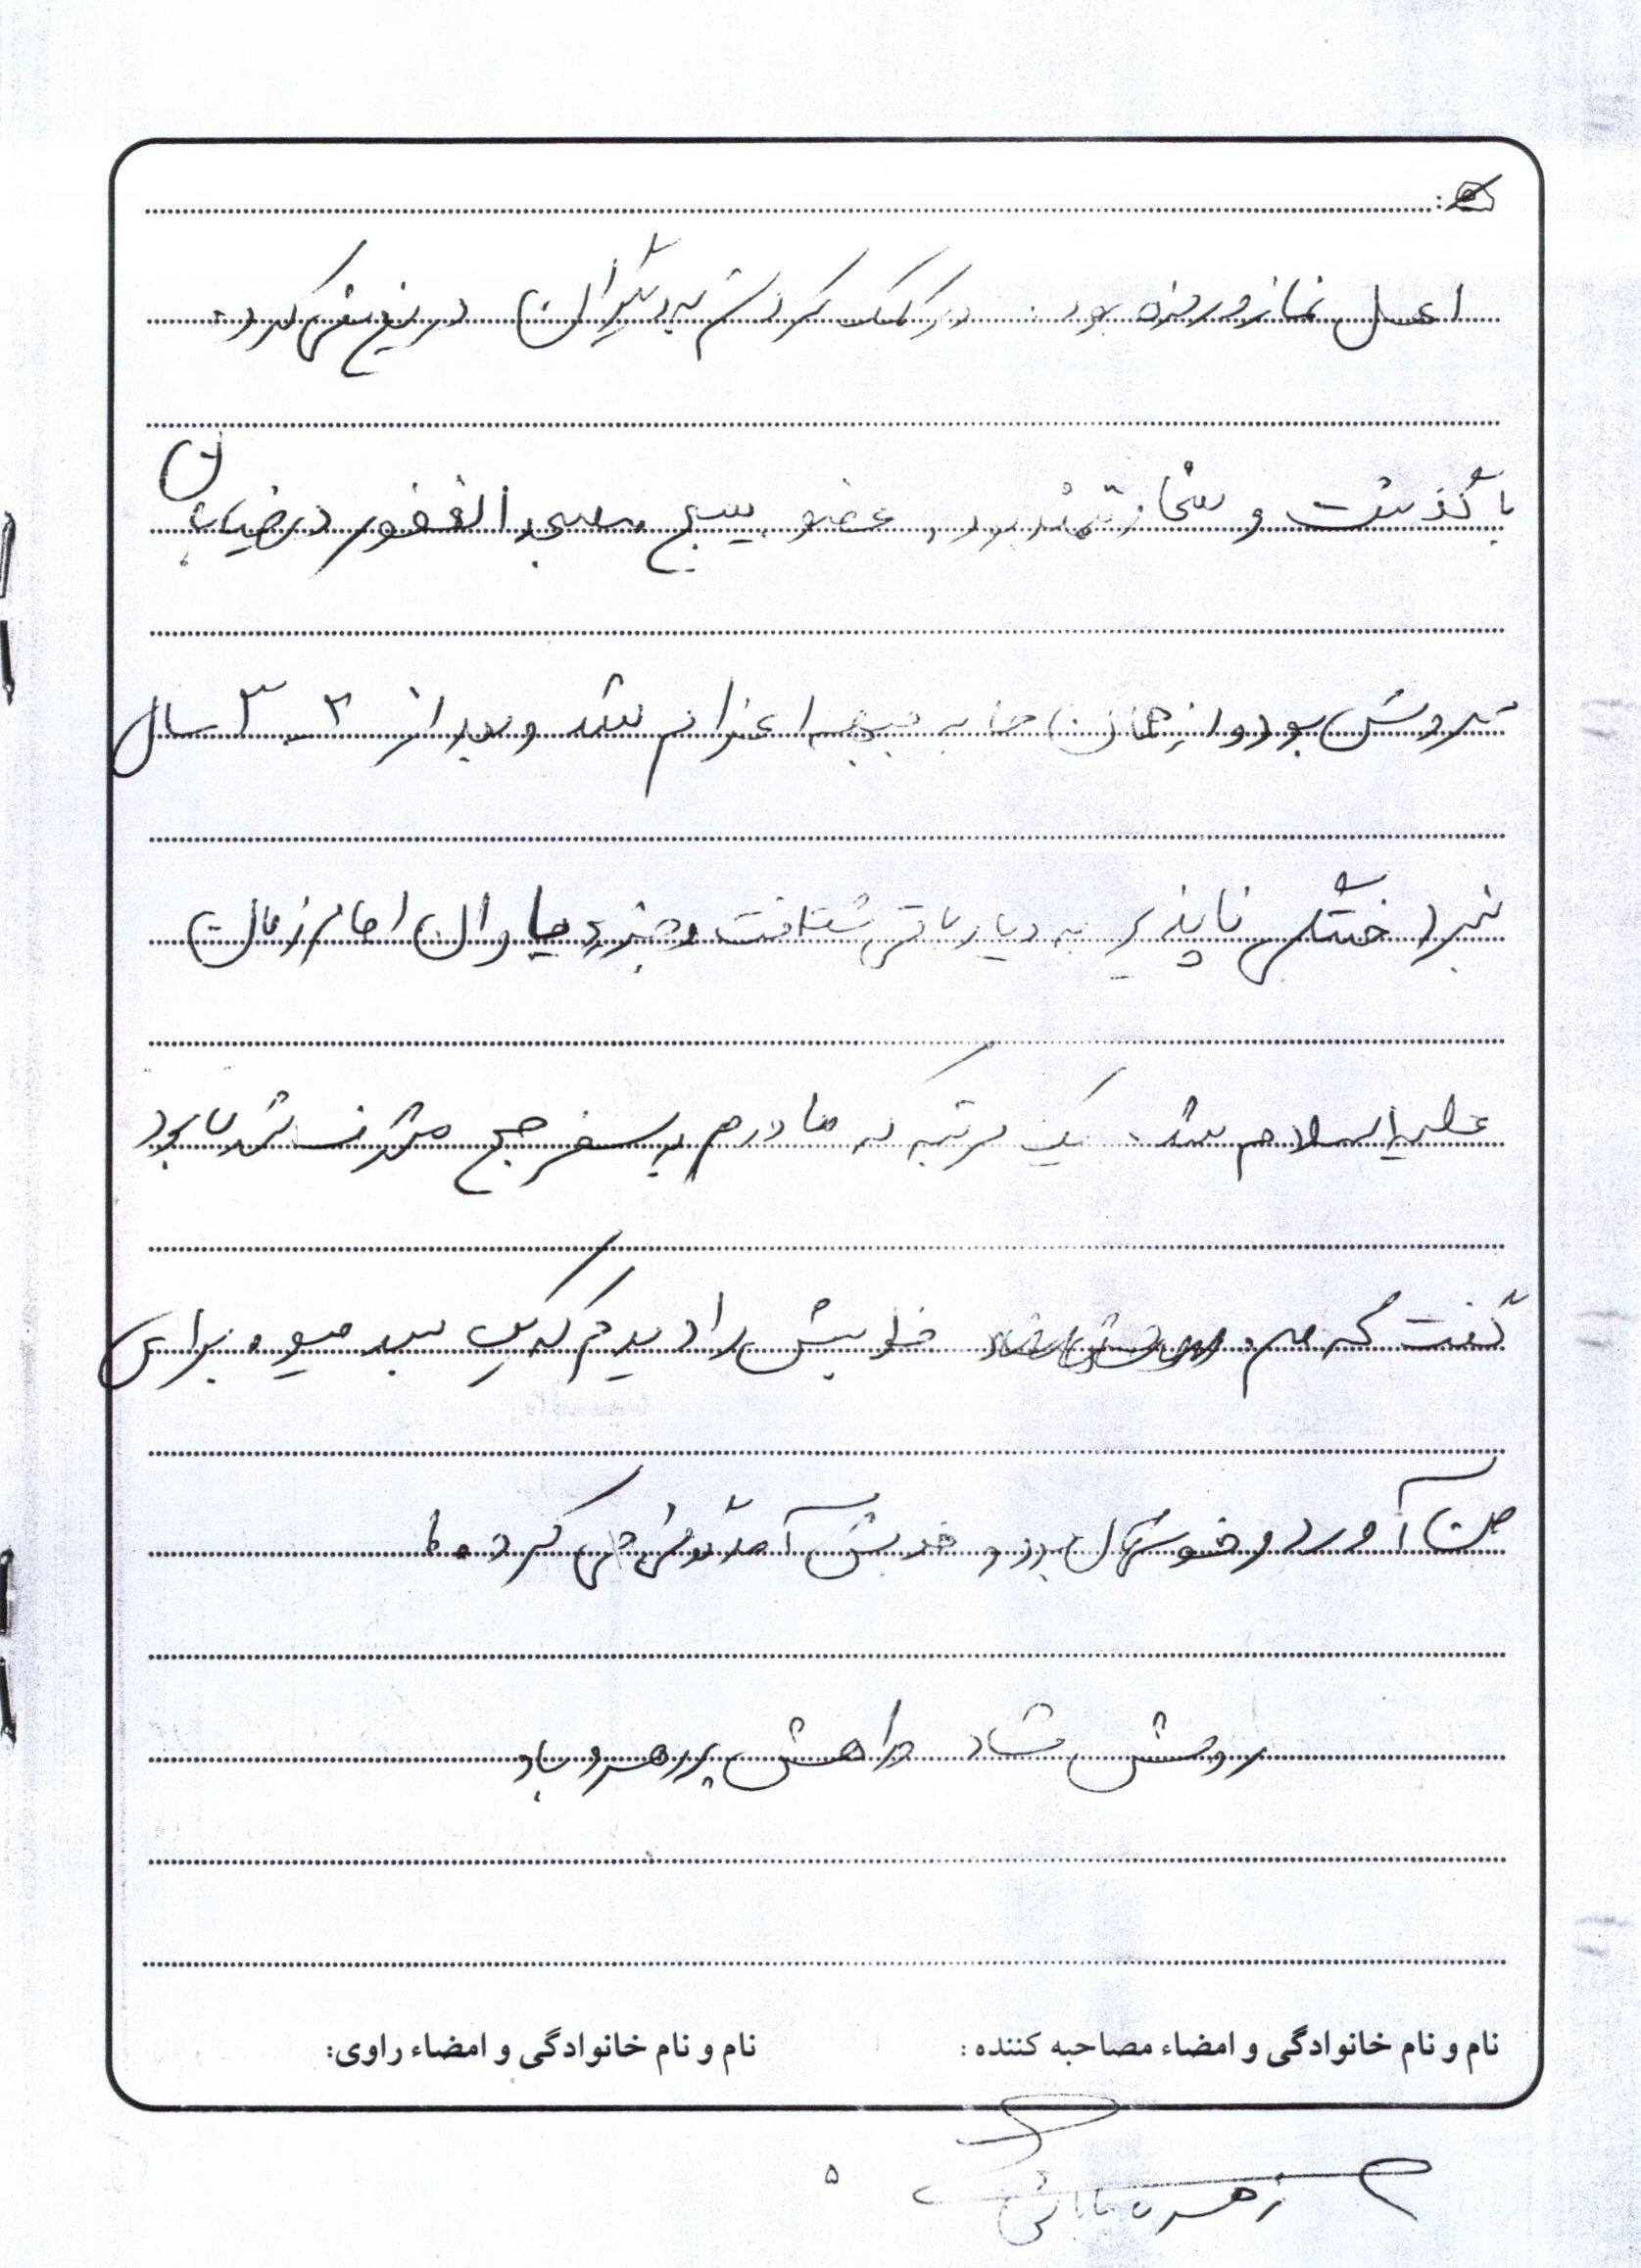 اعمل نماز و روزه بود. در کمک کردنش به دیگران دریغ نمی‌کرد.
با گذشت و سخاوتمند بود. عضو بسیج مسجد الغفور در خیابان
بود و از همان جا به جبهه اعزام شد و بعد از ۲-۳ سال
نبرد خستگی ناپذیر به دیار باقی شتافت و جزو یاوران امام زمان
علیه السلام شد. یک مرتبه که مادرم به سفر حج مشرف شده بود
گفت که من خوابش را دیدم که یک سبد میوه برای
من آورد و خوشحال بود و می کرد.
روحش شاد و راهش پر رهرو باد
نام و نام خانوادگی و امضاء مصاحبه کننده :
نام و نام خانوادگی و امضاء راوی:
زهره بابائی
۵